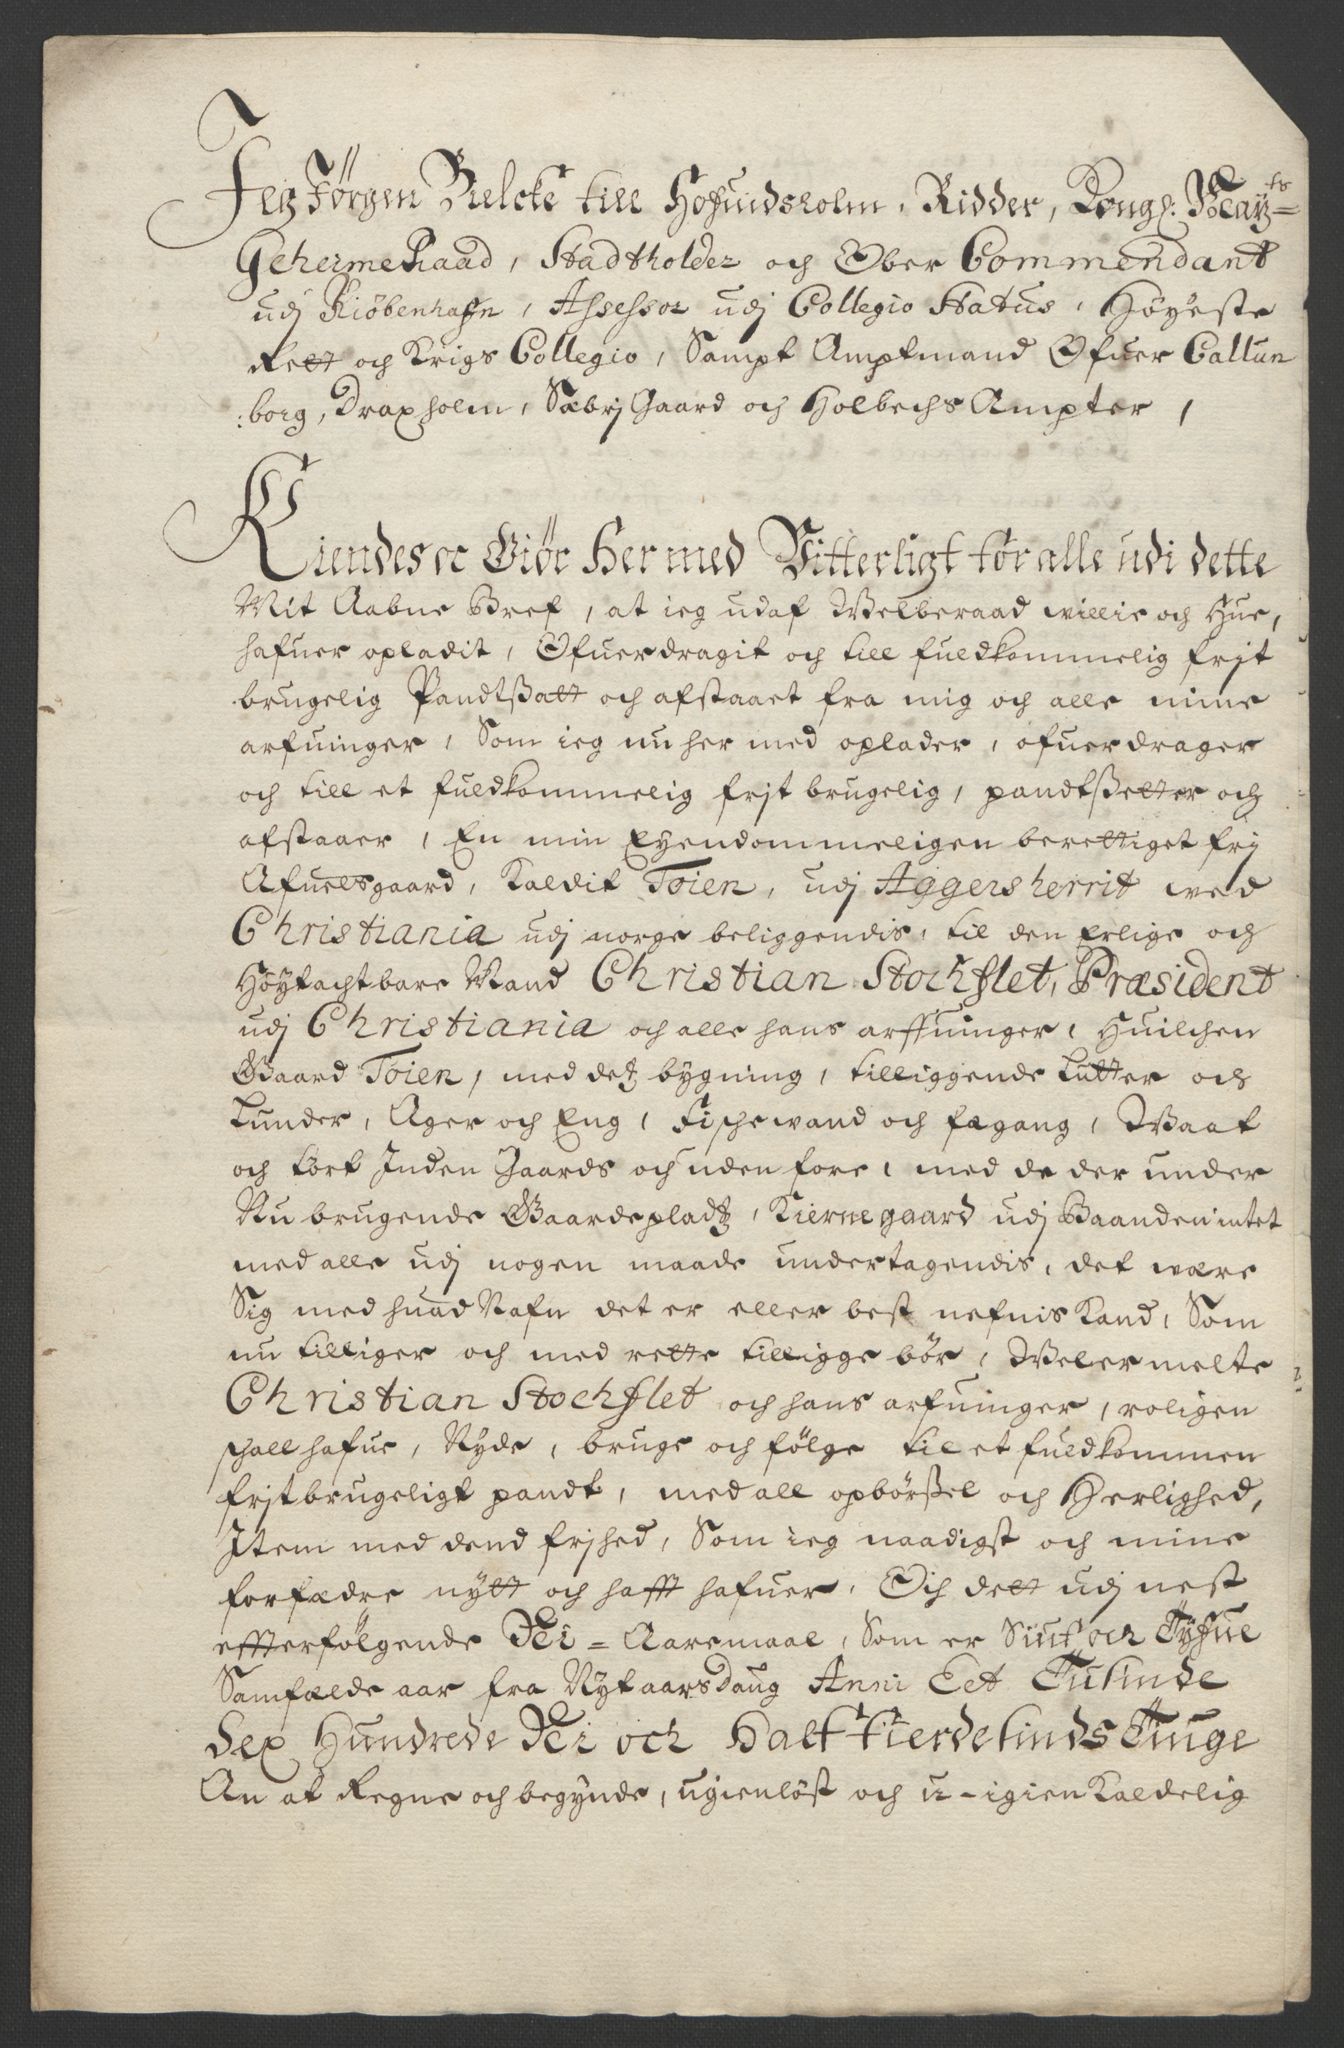 Jeg Jörgen Bielcke till Hofuidsholm, Ridder, Kongl: Mayts=
Geheime Raad, Stadtholder och Ober Commendant
udj Kiöbenhafn, Assessor udj Collegio Status, Höyeste
Rett och Krigs Collegio, Sampt Amptmand Ofuer Callun
:borg, Draxholm, Sæbrj Gaard och Holbechs Ampter,
Kiendes oc Giör Hermed Vitterligt for alle udi dette
Mit Aabne Bref, at ieg udaf Velberaad willie och Hue,
hafuer opladit, Ofuerdragit och till fuldkommelig frjt
brugelig Pandtßatt och afstaaet fra mig och alle mine
arfuinger, Som ieg nu her med oplader, ofuerdrager
och till et fuldkommelig frjt brugelig, pandtßetter och
afstaaer, En min Eyendommeligen berettiget frj
Afuelsgaard, Kaldit Toien, udj Aggersherrit wed
Christiania udj norge beliggendis, til den Erlige och
Höytachtbare Mand Christian Stochflet, Præsident
udj Christiania och alle hans arffuinger, Huilchen
Gaard Toien, med detz bygning, tilliggende Lutter och
Lunder, Ager och Eng, Fischewand och fægang, Waat
och tört Inden Gaards och uden fore, med de der under
Nu brugende Gaardepladtz, Kiernegaard udj Baanden intet
med alle udj nogen maade undertagendis, det være
Sig med huad Nafn det er eller best nefnis Kand, Som
nu tilliger och med rette tilligge bör, Velermelte
Christian Stochflet och hans arfuinger, roligen
schall hafue, Nyde, bruge och fölge til et fuldkommen
frjtbrugeligt pandt, med all opbörßel och Herlighed,
Item med dend frjhed, Som ieg naadigst och mine
forfædre nytt och hafft hafuer, Och dett udj nest
effterfölgende Aaremaal, Som er Siuf och Tyfue
Samfælde aar fra Nytaarsdaug Anni Eet Tusinde
Sex Hundrede och Halftfierdesinds Tiuge
An at Regne och begynde, ugienlöst och u-igienkaldelig